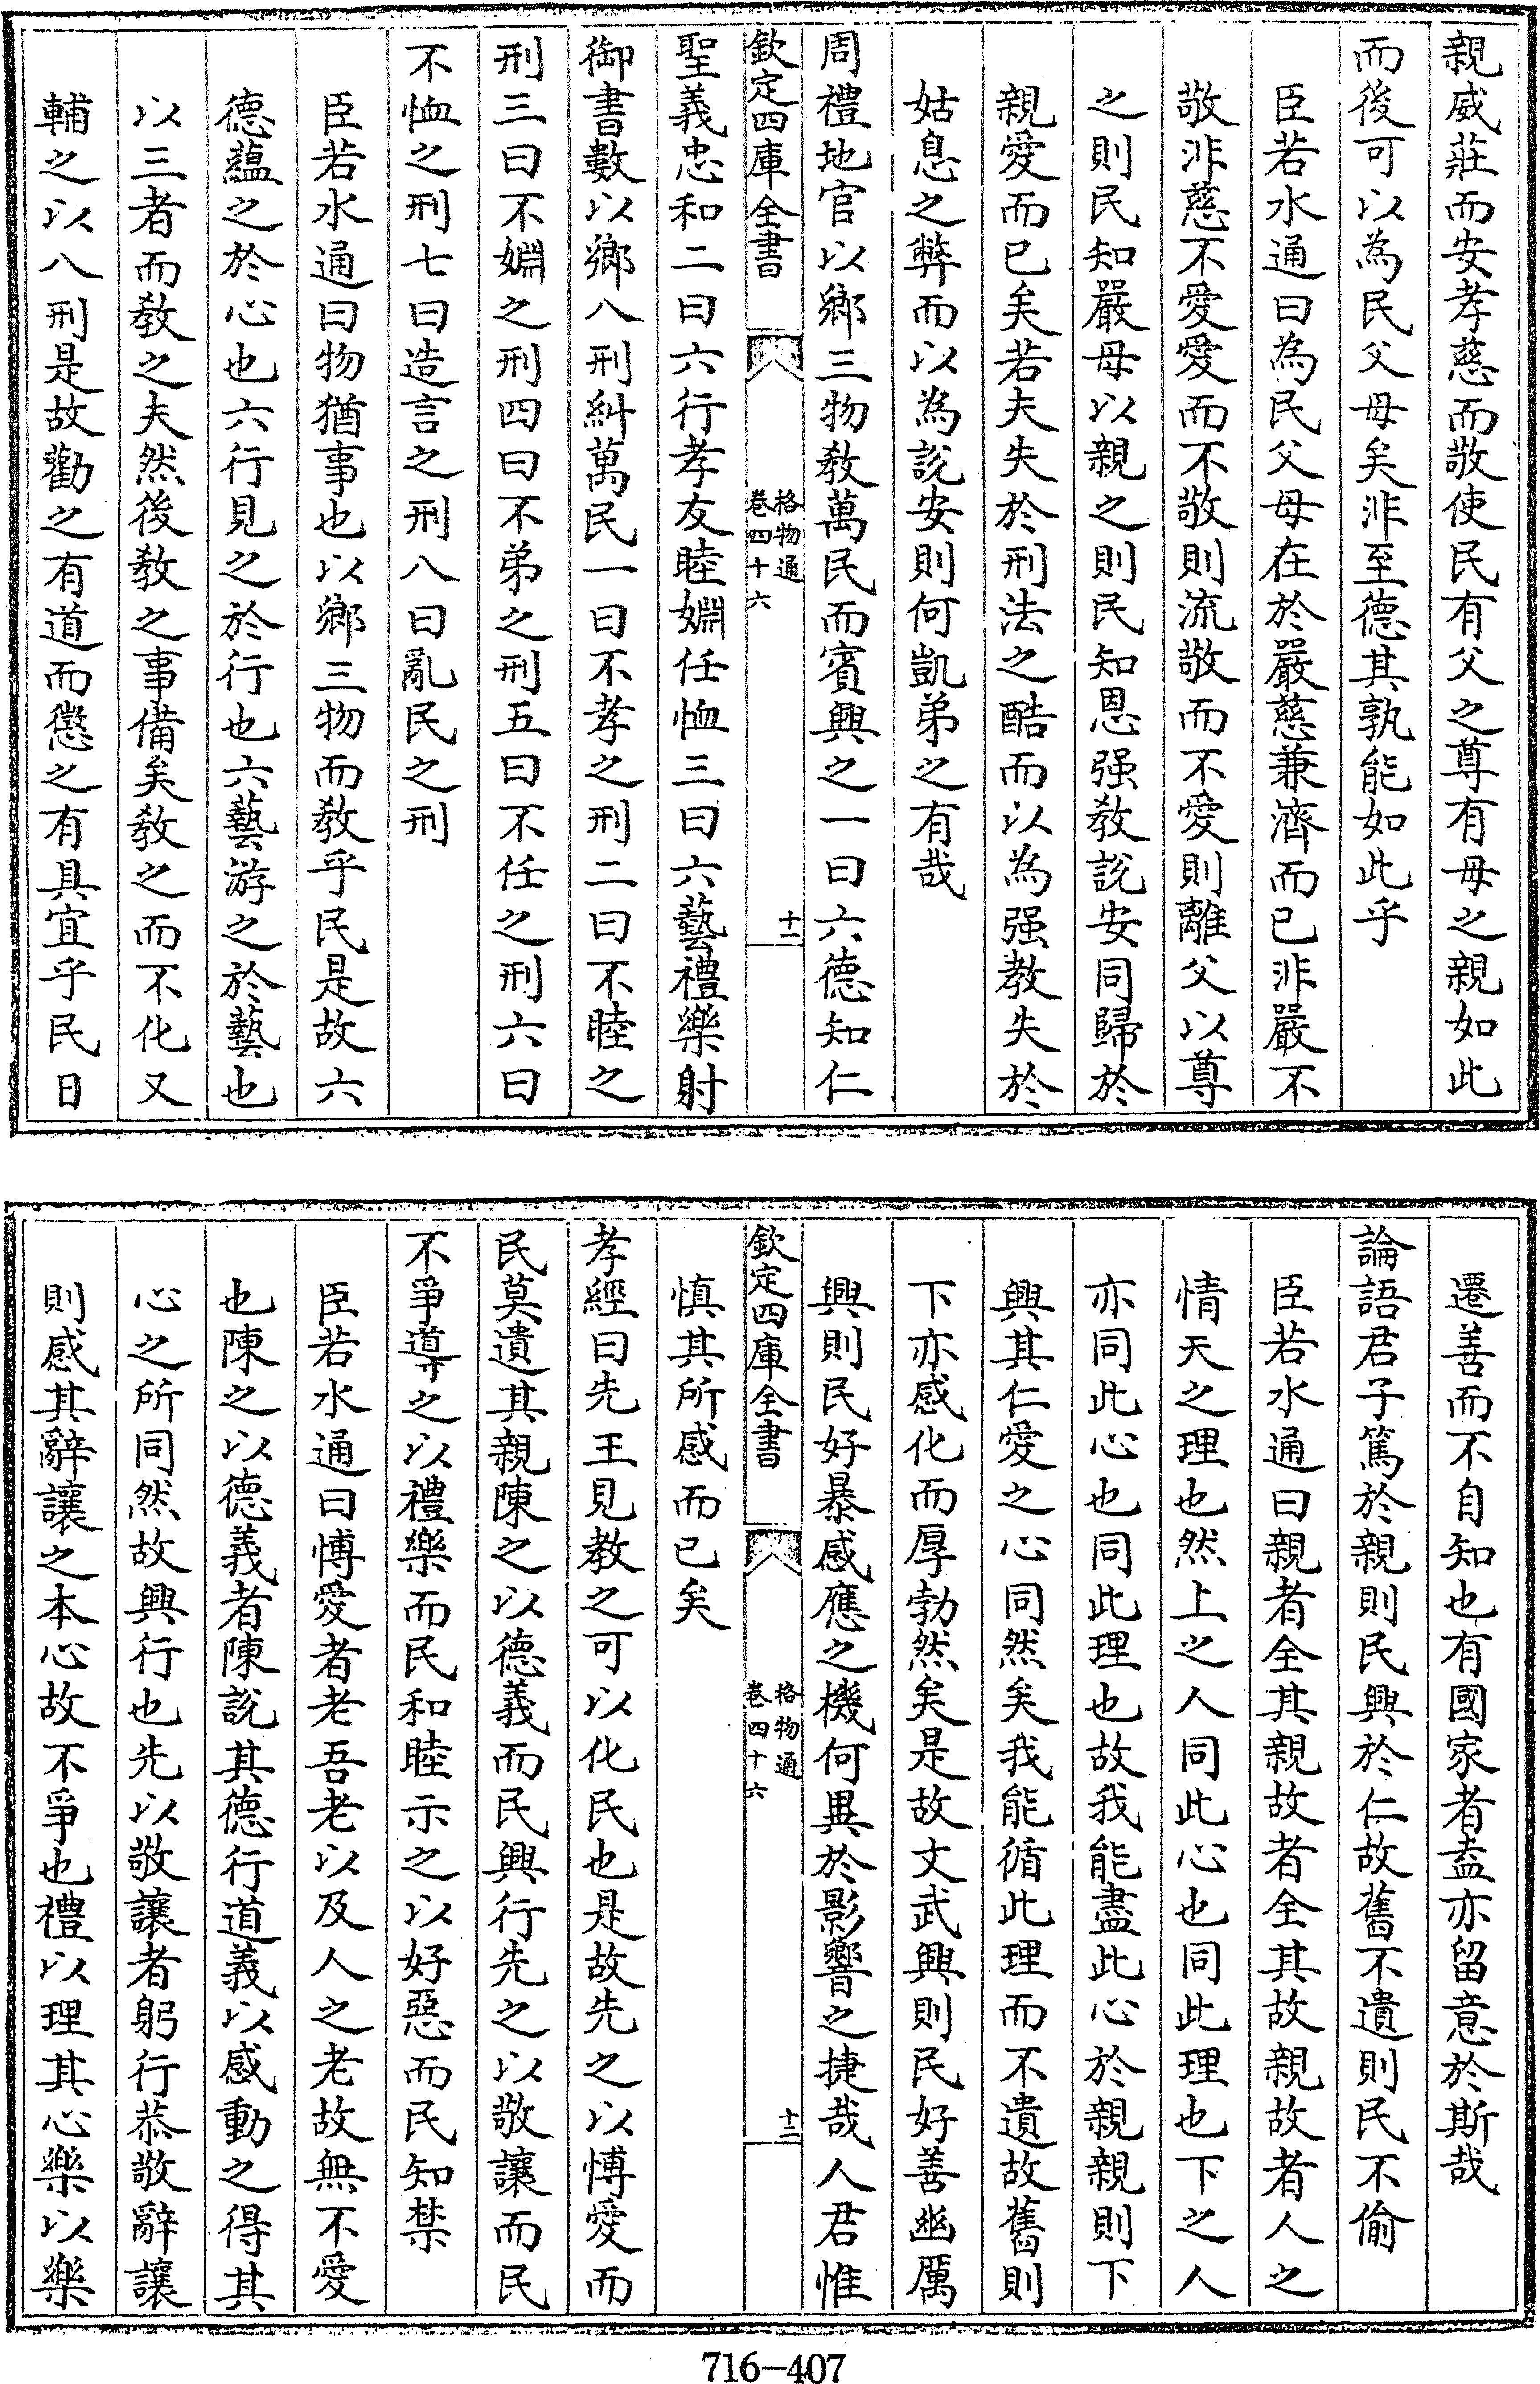 親威莊而安孝慈而敬使民有父之尊有母之親如此
而後可以為民父母矣非至德其孰能如此乎
臣若水通曰為民父母在於嚴慈兼濟而已非嚴不
敬非慈不愛愛而不敬則流敬而不愛則離父以尊
之則民知嚴母以親之則民知恩强教說安同歸於
親愛而已矣若夫失於刑法之酷而以為强教失於
姑息之弊而以為說安則何凱弟之有哉
周禮地官以鄉三物教萬民而賓興之一曰六德知仁
欽定四庫全書
格物通
卷四十六
十一
聖義忠和二曰六行孝友睦婣任恤三曰六藝禮樂射
御書數以鄉八刑糾萬民一曰不孝之刑二曰不睦之
刑三曰不婣之刑四曰不弟之刑五曰不任之刑六曰
不恤之刑七曰造言之刑八曰亂民之刑
臣若水通曰物猶事也以鄉三物而教乎民是故六
德蘊之於心也六行見之於行也六藝游之於藝也
以三者而教之夫然後教之事備矣教之而不化又
輔之以八刑是故勸之有道而懲之有具宜乎民日
遷善而不自知也有國家者盍亦留意於斯哉
論語君子篤於親則民興於仁故舊不遺則民不偷
臣若水通曰親者全其親故者全其故親故者人之
情天之理也然上之人同此心也同此理也下之人
亦同此心也同此理也故我能盡此心於親親則下
興其仁愛之心同然矣我能循此理而不遺故舊則
下亦感化而厚勃然矣是故文武興則民好善幽厲
興則民好暴感應之機何異於影響之捷哉人君惟
欽定四庫全書
格物通
卷四十六
十二
慎其所感而已矣
孝經曰先王見教之可以化民也是故先之以博愛而
民莫遺其親陳之以德義而民興行先之以敬讓而民
不爭導之以禮樂而民和睦示之以好惡而民知禁
臣若水通曰博愛者老吾老以及人之老故無不愛
也陳之以德義者陳說其德行道義以感動之得其
心之所同然故興行也先以敬讓者躬行恭敬辭讓
則感其辭讓之本心故不爭也禮以理其心樂以樂
716-407